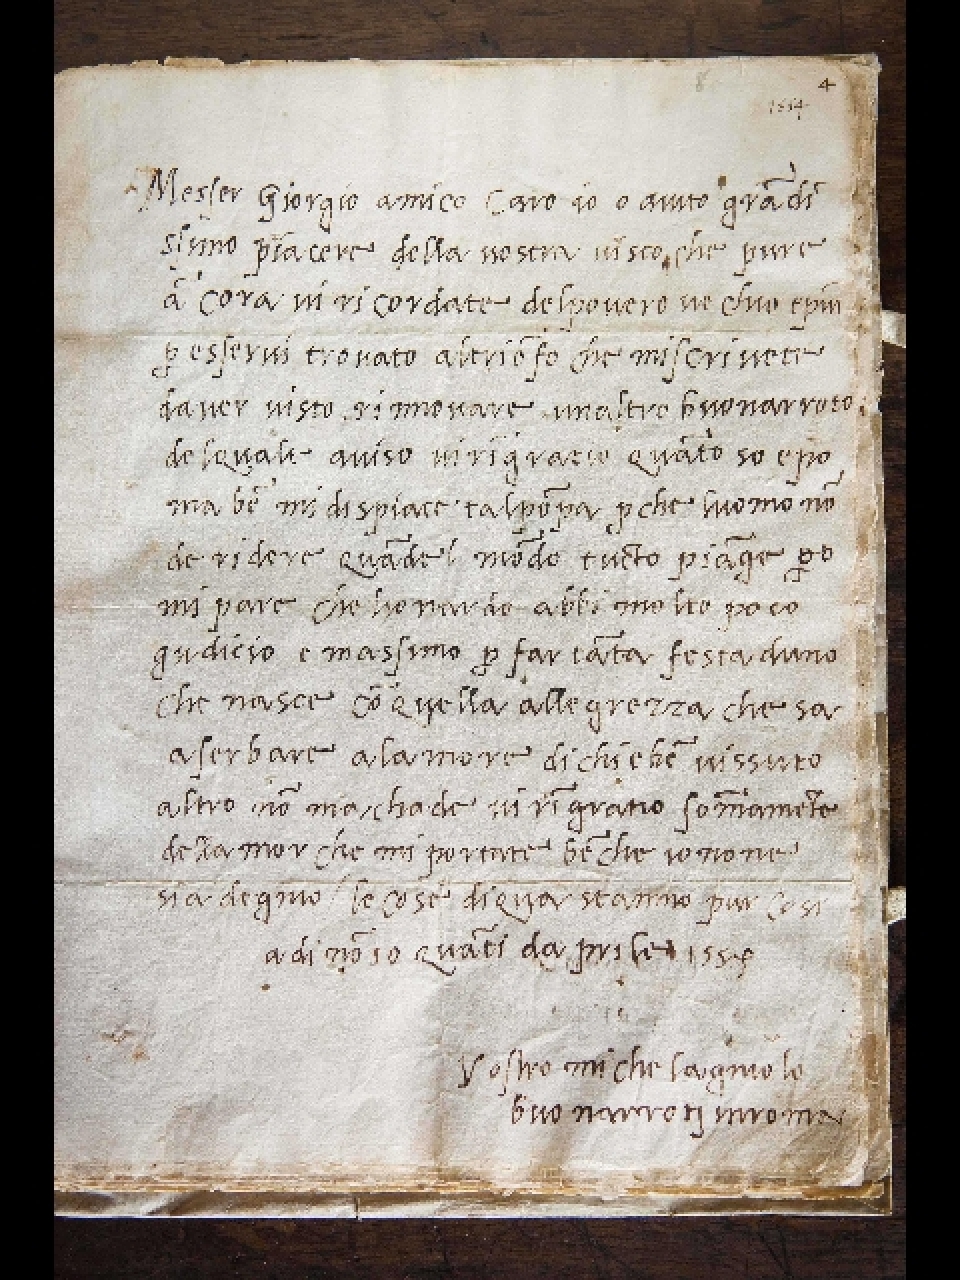 8
4
1554
Messer Giorgio amico caro io o auto grādi
simo piacere della vostra visto che pure
ā cora vi ricordate del povero vechio e piu
p esservi trovato al triōfo che mi scrivete
daver visto rinnovare un altro buonarroto
del quale aviso vi rīgratio quāto so e po
ma bē mi dispiace tal pōpa p che luomo nō
de ridere quādel mōdo tucto piāge po
mi pare che lionardo abbi molto poco
gudicio e massimo p far tāta festa duno
che nasce cō quella allegrezza che sa
a serbare a la morte di chi e bē vissuto
altro nō machade vi rīgratio sommamēte
dellamor che mi portate bē che io none
sia degnio le cose di qua stanno pur cosi
a di nō so quāti daprile 1554
Vostro michelagniolo
buonarroti in roma